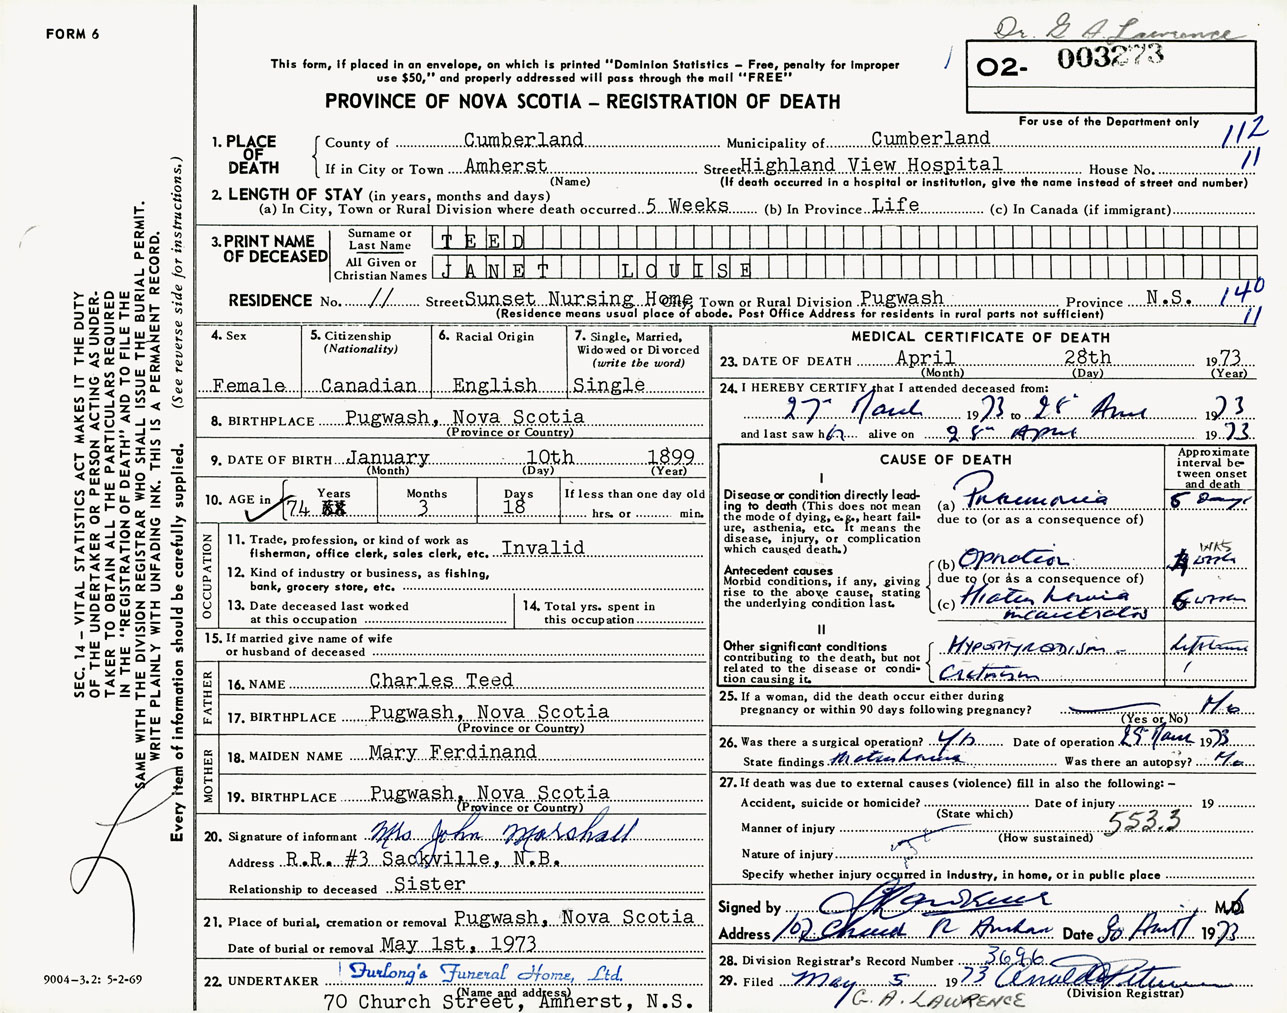 FORM 6
Dr. G A Lawrence
This form, if placed in an envelope, on which is printed "Dominion Statistics – Free, penalty for improper
use $50," and properly addressed will pass through the mail "FREE"
PROVINCE OF NOVA SCOTIA – REGISTRATION OF DEATH
02- 003273
For use of the Department only
1. PLACE OF DEATH
County of Cumberland Municipality of Cumberland 112
If in City or Town Amherst Street Highland View Hospital House No. 11
(Name) (If death occurred in a hospital or institution, give the name instead of street and number)
2. LENGTH OF STAY (in years, months and days)
(a) In City, Town or Rural Division where death occurred 5 Weeks (b) In Province Life (c) In Canada (if immigrant)
3. PRINT NAME OF DECEASED
Surname or Last Name TEED
All Given or Christian Names JANET LOUISE
RESIDENCE No. // Street Sunset Nursing Home, Town or Rural Division Pugwash Province N.S. 140
(Residence means usual place of abode. Post Office Address for residents in rural parts not sufficient) 11
4. Sex
Female
5. Citizenship
(Nationality)
Canadian
6. Racial Origin
English
7. Single, Married,
Widowed or Divorced
(write the word)
Single
8. BIRTHPLACE Pugwash, Nova Scotia
(Province or Country)
9. DATE OF BIRTH January 10th 1899
(Month) (Day) (Year)
10. AGE in
Years Months Days If less than one day old
74 3 18 hrs. or min.
OCCUPATION
11. Trade, profession, or kind of work as
fisherman, office clerk, sales clerk, etc. Invalid
12. Kind of industry or business, as fishing,
bank, grocery store, etc.
13. Date deceased last worked
at this occupation
14. Total yrs. spent in
this occupation
15. If married give name of wife
or husband of deceased
FATHER
16. NAME Charles Teed
17. BIRTHPLACE Pugwash, Nova Scotia
(Province or Country)
MOTHER
18. MAIDEN NAME Mary Ferdinand
19. BIRTHPLACE Pugwash, Nova Scotia
(Province or Country)
20. Signature of informant Mrs John Marshall
Address R.R. #3 Sackville, N.B.
Relationship to deceased Sister
21. Place of burial, cremation or removal Pugwash, Nova Scotia
Date of burial or removal May 1st, 1973
22. UNDERTAKER Furlong's Funeral Home, Ltd.
(Name and address)
70 Church Street, Amherst, N.S.
MEDICAL CERTIFICATE OF DEATH
23. DATE OF DEATH April 28th 1973
(Month) (Day) (Year)
24. I HEREBY CERTIFY that I attended deceased from:
27 March 1973 to 28 1973
and last saw h alive on 28 April 1973
CAUSE OF DEATH
Approximate
interval be-
tween onset
and death
I
Disease or condition directly lead-
ing to death (This does not mean
the mode of dying, e.g., heart fail-
ure, asthenia, etc. It means the
disease, injury, or complication
which caused death.)
(a) Pneumonia 5 Days
due to (or as a consequence of)
Antecedent causes
Morbid conditions, if any, giving
rise to the above cause, stating
the underlying condition last.
(b) Operation WKS
due to (or as a consequence of)
(c) Hiatus hernia
incarcerated
II
Other significant conditions
contributing to the death, but not
related to the disease or condi-
tion causing it.
Hypothyroidism – Lifetime
Cretinism
25. If a woman, did the death occur either during
pregnancy or within 90 days following pregnancy? No
(Yes or No)
26. Was there a surgical operation? Yes Date of operation 1973
State findings Was there an autopsy? No
27. If death was due to external causes (violence) fill in also the following: –
Accident, suicide or homicide? Date of injury 19
(State which)
Manner of injury 553.3
(How sustained)
Nature of injury
Specify whether injury occurred in industry, in home, or in public place
Signed by M.D.
Address 102 Church Amherst Date 30 April 1973
28. Division Registrar's Record Number 3696
29. Filed May 5 1973
(Division Registrar)
G. A. LAWRENCE
SEC. 14 – VITAL STATISTICS ACT MAKES IT THE DUTY
OF THE UNDERTAKER OR PERSON ACTING AS UNDER-
TAKER TO OBTAIN ALL THE PARTICULARS REQUIRED
IN THE "REGISTRATION OF DEATH" AND TO FILE THE
SAME WITH THE DIVISION REGISTRAR WHO SHALL ISSUE THE BURIAL PERMIT.
WRITE PLAINLY WITH UNFADING INK. THIS IS A PERMANENT RECORD.
Every item of information should be carefully supplied. (See reverse side for instructions.)
9004–3.2: 5-2-69